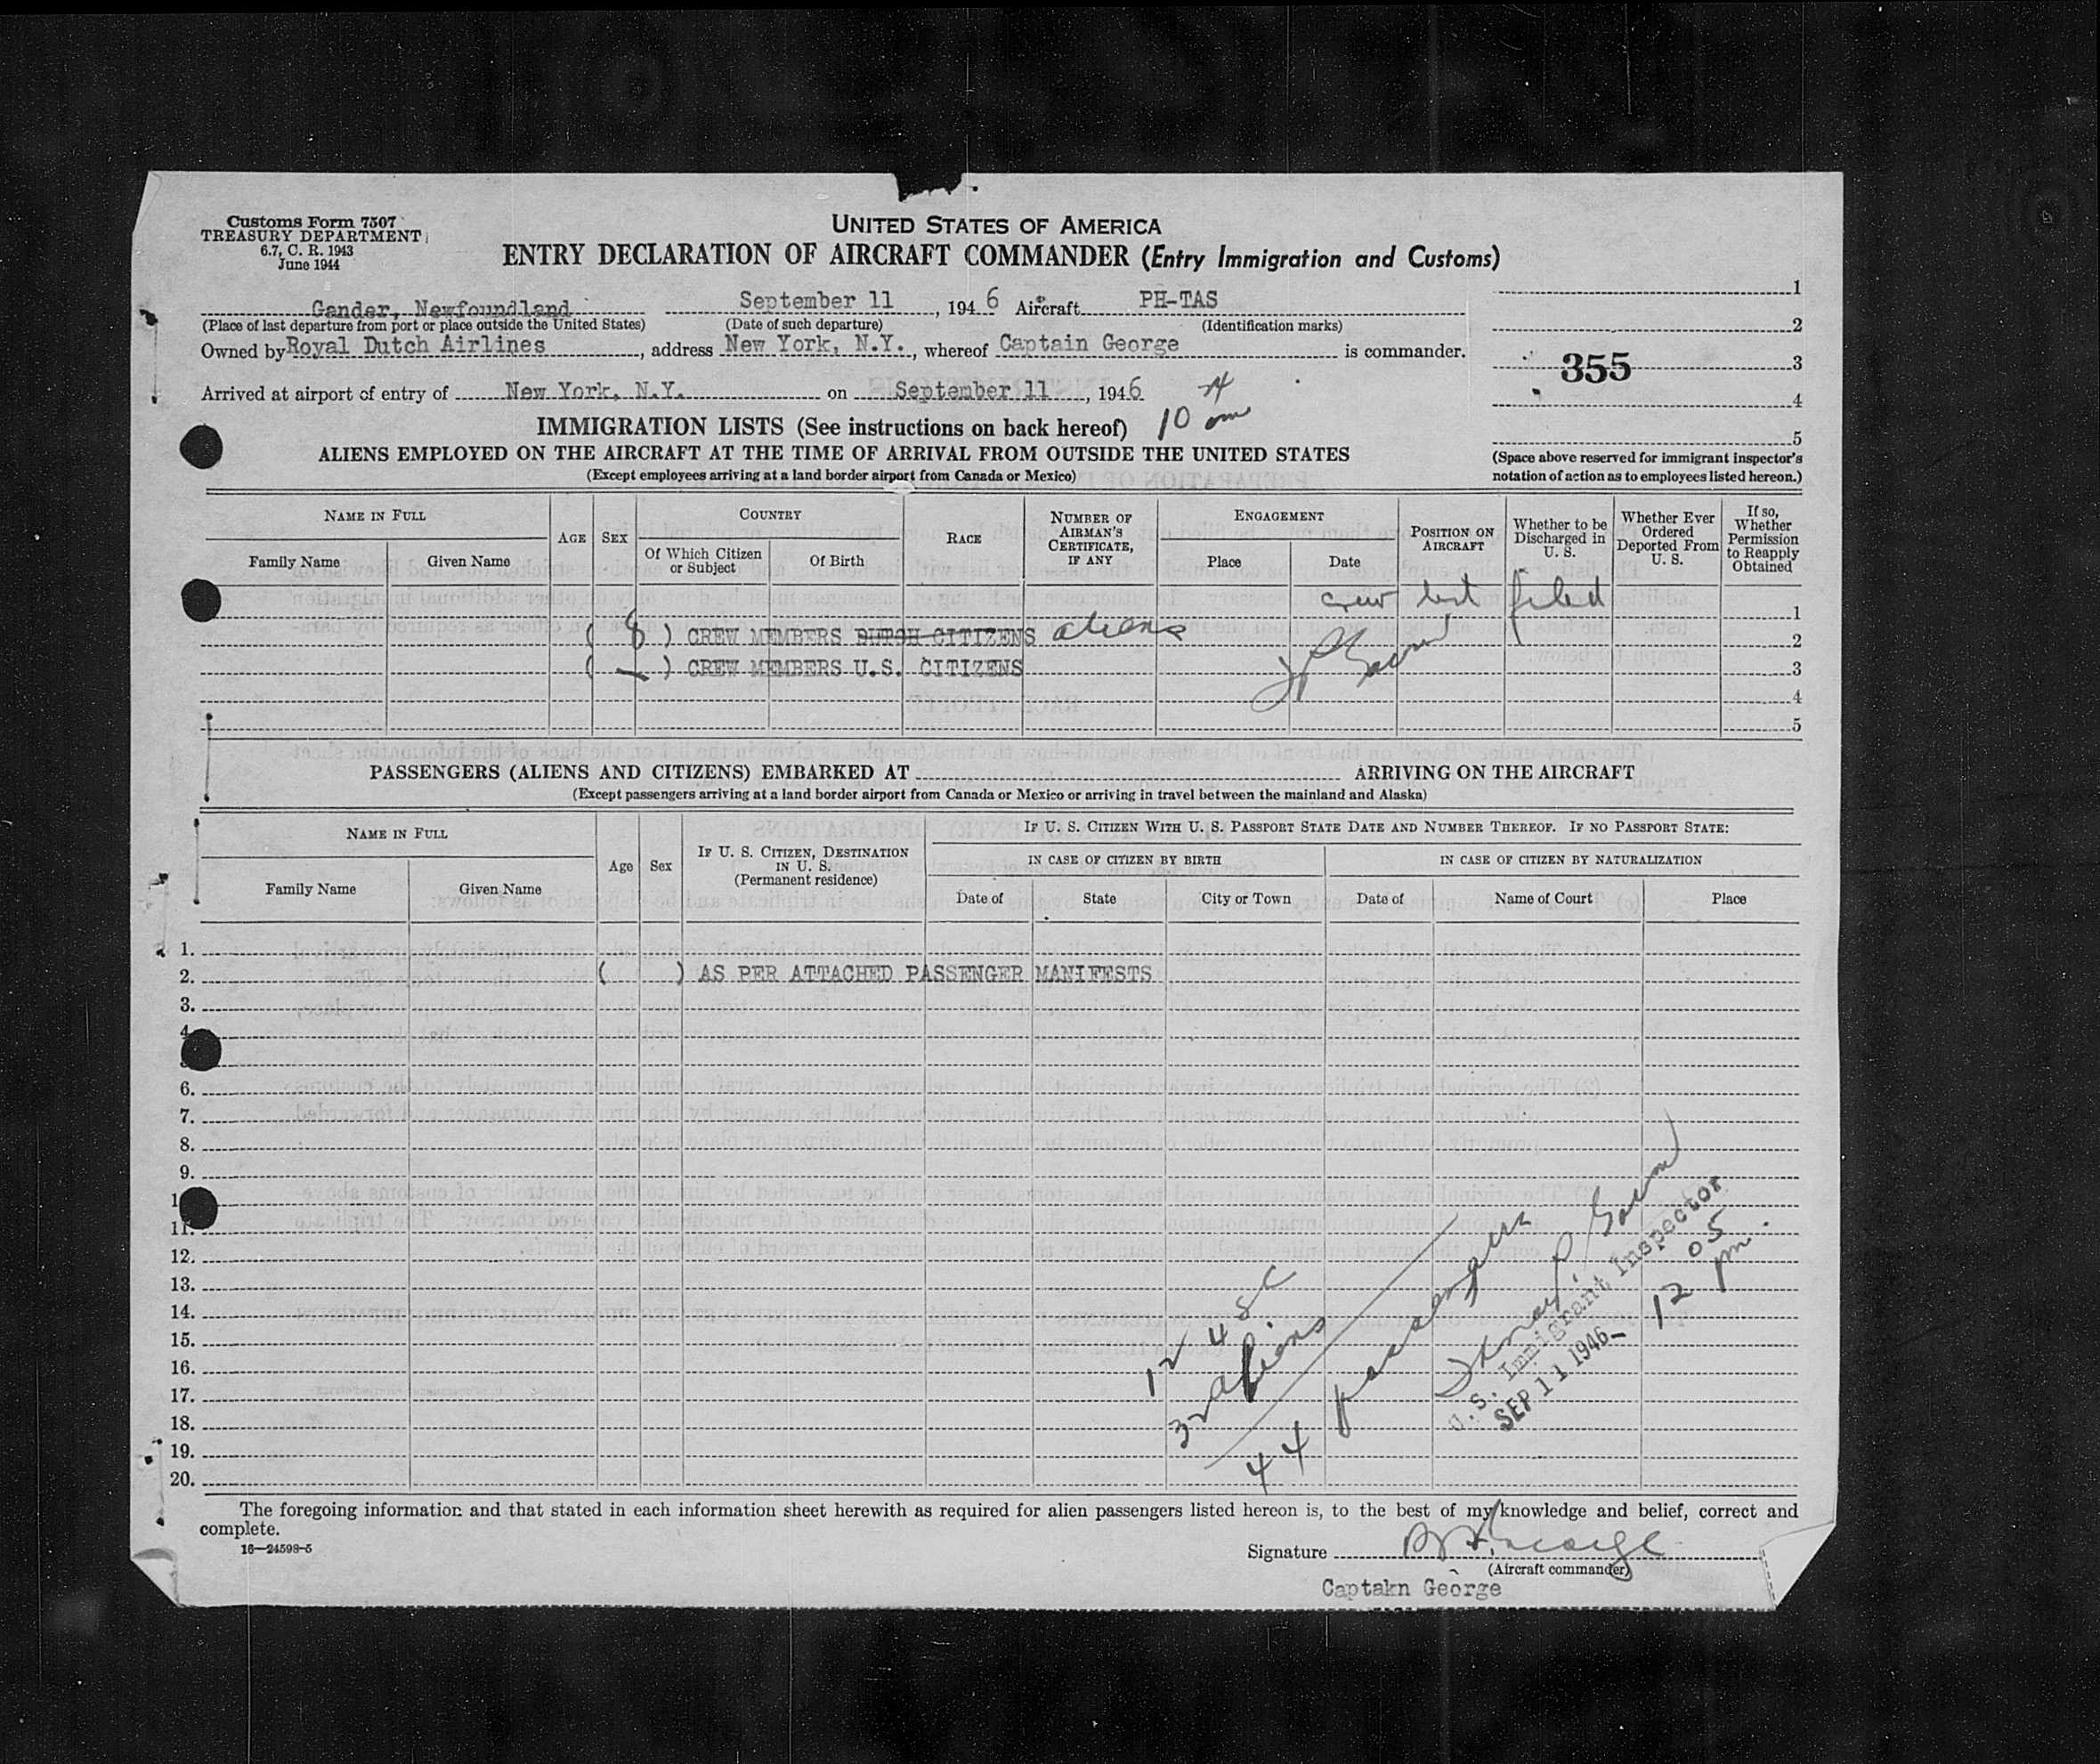 Customs Form 7507
TREASURY DEPARTMENT
6.7, C. R. 1943
June 1944
UNITED STATES OF AMERICA
ENTRY DECLARATION OF AIRCRAFT COMMANDER (Entry Immigration and Customs)
Gander, Newfoundland September 11, 1946 Aircraft PH-TAS
(Place of last departure from port or place outside the United States) (Date of such departure) (Identification marks)
Owned by Royal Dutch Airlines, address New York, N.Y., whereof Captain George is commander.
Arrived at airport of entry of New York, N.Y. on September 11, 1946
10 am
1
2
355 3
4
5
(Space above reserved for immigrant inspector's
notation of action as to employees listed hereon.)
IMMIGRATION LISTS (See instructions on back hereof)
ALIENS EMPLOYED ON THE AIRCRAFT AT THE TIME OF ARRIVAL FROM OUTSIDE THE UNITED STATES
(Except employees arriving at a land border airport from Canada or Mexico)
NAME IN FULL
Family Name Given Name
AGE SEX
COUNTRY
Of Which Citizen or Subject Of Birth
RACE
NUMBER OF AIRMAN'S CERTIFICATE, IF ANY
ENGAGEMENT
Place Date
POSITION ON AIRCRAFT
Whether to be Discharged in U. S.
Whether Ever Ordered Deported From U. S.
If so, Whether Permission to Reapply Obtained
crew list filed 1
( 8 ) CREW MEMBERS DUTCH CITIZENS aliens 2
( — ) CREW MEMBERS U.S. CITIZENS 3
4
5
PASSENGERS (ALIENS AND CITIZENS) EMBARKED AT ARRIVING ON THE AIRCRAFT
(Except passengers arriving at a land border airport from Canada or Mexico or arriving in travel between the mainland and Alaska)
NAME IN FULL
Family Name Given Name
Age Sex
IF U. S. CITIZEN, DESTINATION IN U. S.
(Permanent residence)
IF U. S. CITIZEN WITH U. S. PASSPORT STATE DATE AND NUMBER THEREOF. IF NO PASSPORT STATE:
IN CASE OF CITIZEN BY BIRTH IN CASE OF CITIZEN BY NATURALIZATION
Date of State City or Town Date of Name of Court Place
1.
2. ( ) AS PER ATTACHED PASSENGER MANIFESTS
3.
4.
6.
7.
8.
9.
11.
12.
13.
14.
15.
16.
17.
18.
19.
20.
12 USC
32 aliens
44 passengers
U.S. Immigrant Inspector
SEP 11 1946 - 12 05 pm.
The foregoing information and that stated in each information sheet herewith as required for alien passengers listed hereon is, to the best of my knowledge and belief, correct and
complete.
16—24598-5
Signature
(Aircraft commander)
Captakn George